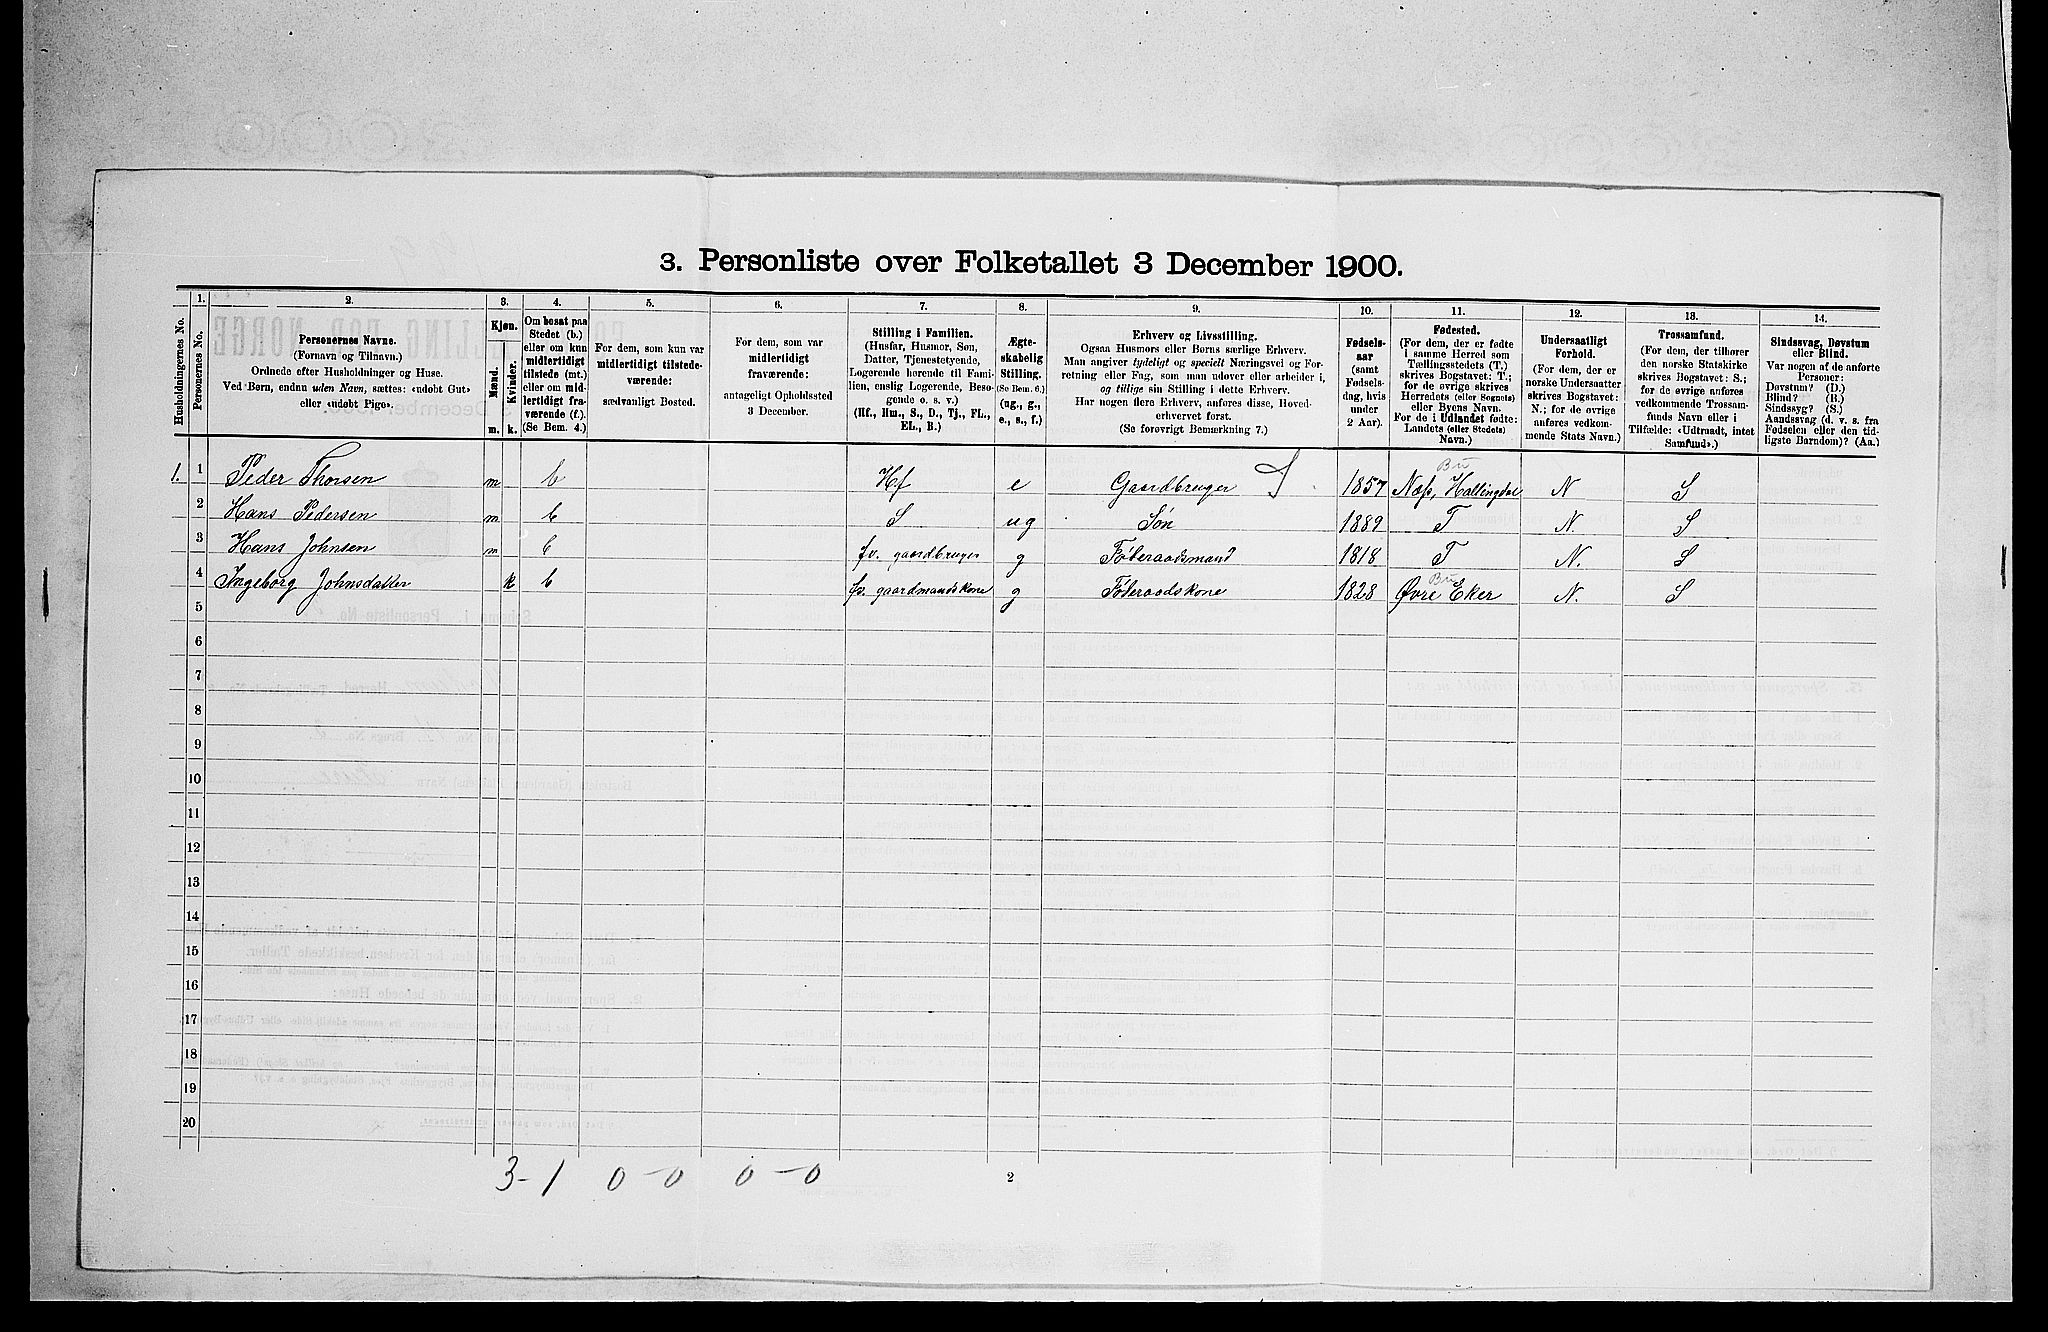 3. Personliste over Folketallet 3 December 1900.
Husholdningernes No.
1.
Personernes No.
2.
Personernes Navne.
(Fornavn og Tilnavn.)
Ordnede efter Husholdninger og Huse.
Ved Børn, endnu uden Navn, sættes: «udøbt Gut»
eller «udøbt Pige».
3.
Kjøn.
Mænd.
Kvinder.
m. k.
4.
Om bosat paa
Stedet (b.)
eller om kun
midlertidigt
tilstede (mt.)
eller om mid-
lertidigt fra-
værende (f.).
(Se Bem. 4.)
5.
For dem, som kun var
midlertidigt tilstede-
værende:
sædvanligt Bosted.
6.
For dem, som var
midlertidigt
fraværende:
antageligt Opholdssted
3 December.
7.
Stilling i Familien.
(Husfar, Husmor, Søn,
Datter, Tjenestetyende,
Logerende hørende til Fami-
lien, enslig Logerende, Besø-
gende o. s. v.)
(Hf., Hm., S., D., Tj., FL.,
EL., B.)
8.
Ægte-
skabelig
Stilling.
(Se Bem. 6.)
(ug., g.,
e., s., f.)
9.
Erhverv og Livsstilling.
Ogsaa Husmors eller Børns særlige Erhverv.
Man angiver tydeligt og specielt Næringsvei og For-
retning eller Fag, som man udøver eller arbeider i,
og tillige sin Stilling i dette Erhverv.
Har nogen flere Erhverv, anføres disse, Hoved-
erhvervet først.
(Se forøvrigt Bemærkning 7.)
10.
Fødsels-
aar
(samt
Fødsels-
dag, hvis
under
2 Aar).
11.
Fødested.
(For dem, der er fødte
i samme Herred som
Tællingsstedets (T.)
skrives Bogstavet: T.;
for de øvrige skrives
Herredets (eller Sognets)
eller Byens Navn.
For de i Udlandet fødte:
Landets (eller Stedets)
Navn.)
12.
Undersaatligt
Forhold.
(For dem, der er
norske Undersaatter
skrives Bogstavet:
N.; for de øvrige
anføres vedkom-
mende Stats Navn.)
13.
Trossamfund.
(For dem, der tilhører
den norske Statskirke
skrives Bogstavet: S.;
for de øvrige anføres
vedkommende Trossam-
funds Navn eller i
Tilfælde: «Udtraadt, intet
Samfund».)
14.
Sindssvag, Døvstum
eller Blind.
Var nogen af de anførte
Personer:
Døvstum? (D.)
Blind? (B.)
Sindssyg? (S.)
Aandssvag (d. v. s. fra
Fødselen eller den tid-
ligste Barndom)? (Aa.)
1. 1 Peder Thorsen m b Hf e Gaardbruger 1857 Bu Næss, Hallingdal N S
2 Hans Pedersen m b S ug Søn 1889 T N. S
3 Hans Johnsen m b fv. gaardbruger g Føderaadsmand 1818 T N. S
4 Ingeborg Johnsdatter k b fv. gaardmandskone g Føderaadskone 1828 Bu Øvre Eker N. S
5
6
7
8
9
10
11
12
13
14
15
16
17
18
19
20
3-1 0-0 0-0
2